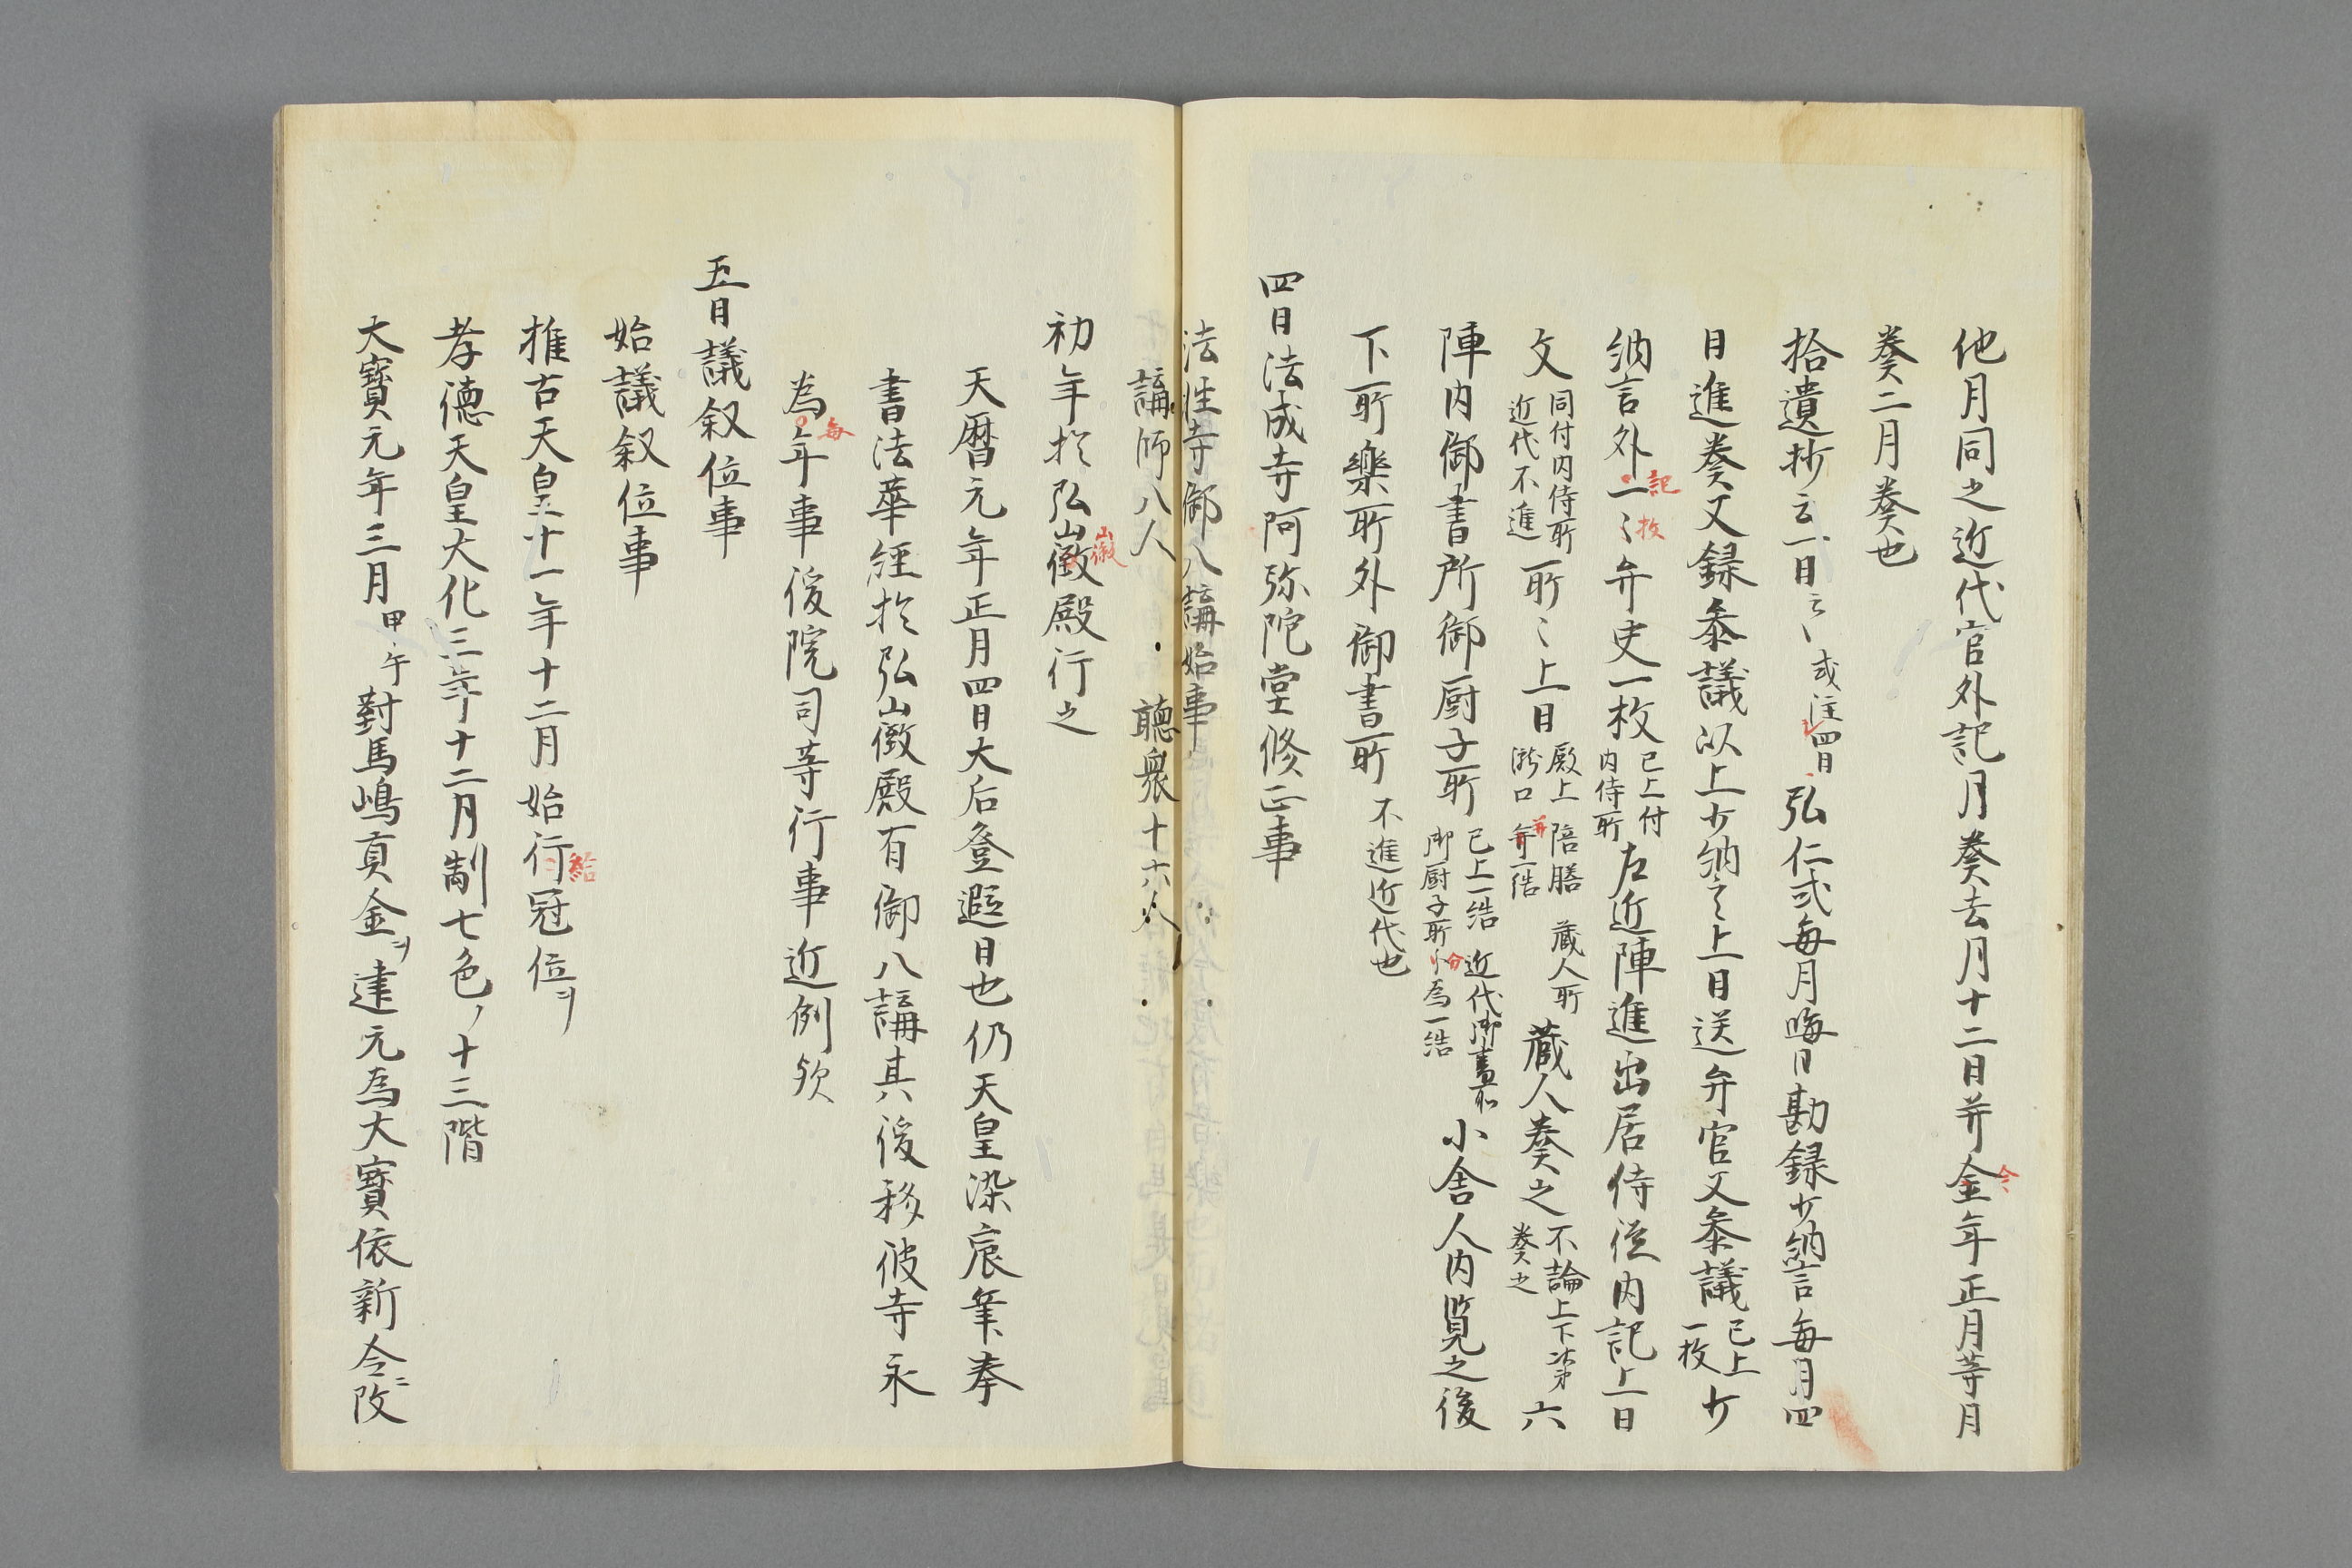 他月同之近代官外記月奏去月十二日并金年正月等月
令
奏二月奏也
拾遺抄云一日云々或注四日弘仁式毎月晦日勘録少納言毎月四
日進奏又録参議以上少納言上日送弁官又参議已上一枚少
納言外一々弁史一枚已上付内侍所左近陣進出居侍従内記上日
記
枚
文同付内侍所近代不進所々上日殿上陪膳蔵人所瀧口弁一結蔵人奏之不論上下次第奏之六
并
陣内御書所御厨子所已上一結近代御書所御厨子所々為一結小舎人内覧之後
分
下所樂所外御書所不進近代也
四日法成寺阿弥陀堂修正事
法性寺御八講始事
講師八人 聴衆十六人
初年於弘徽殿行之
徽
天暦元年正月四日大后登遐日也仍天皇染宸筆奉
書法華經於弘徽殿有御八講其後移彼寺永
為年事後院司等行事近例欤
毎
五日議叙位事
始議叙位事
推古天皇十一年十二月始行冠位ヲ
給
孝德天皇大化三年十二月制七色ノ十三階
大寳元年三月甲午對馬嶋貢金ヲ建元為大寳依新令ニ改